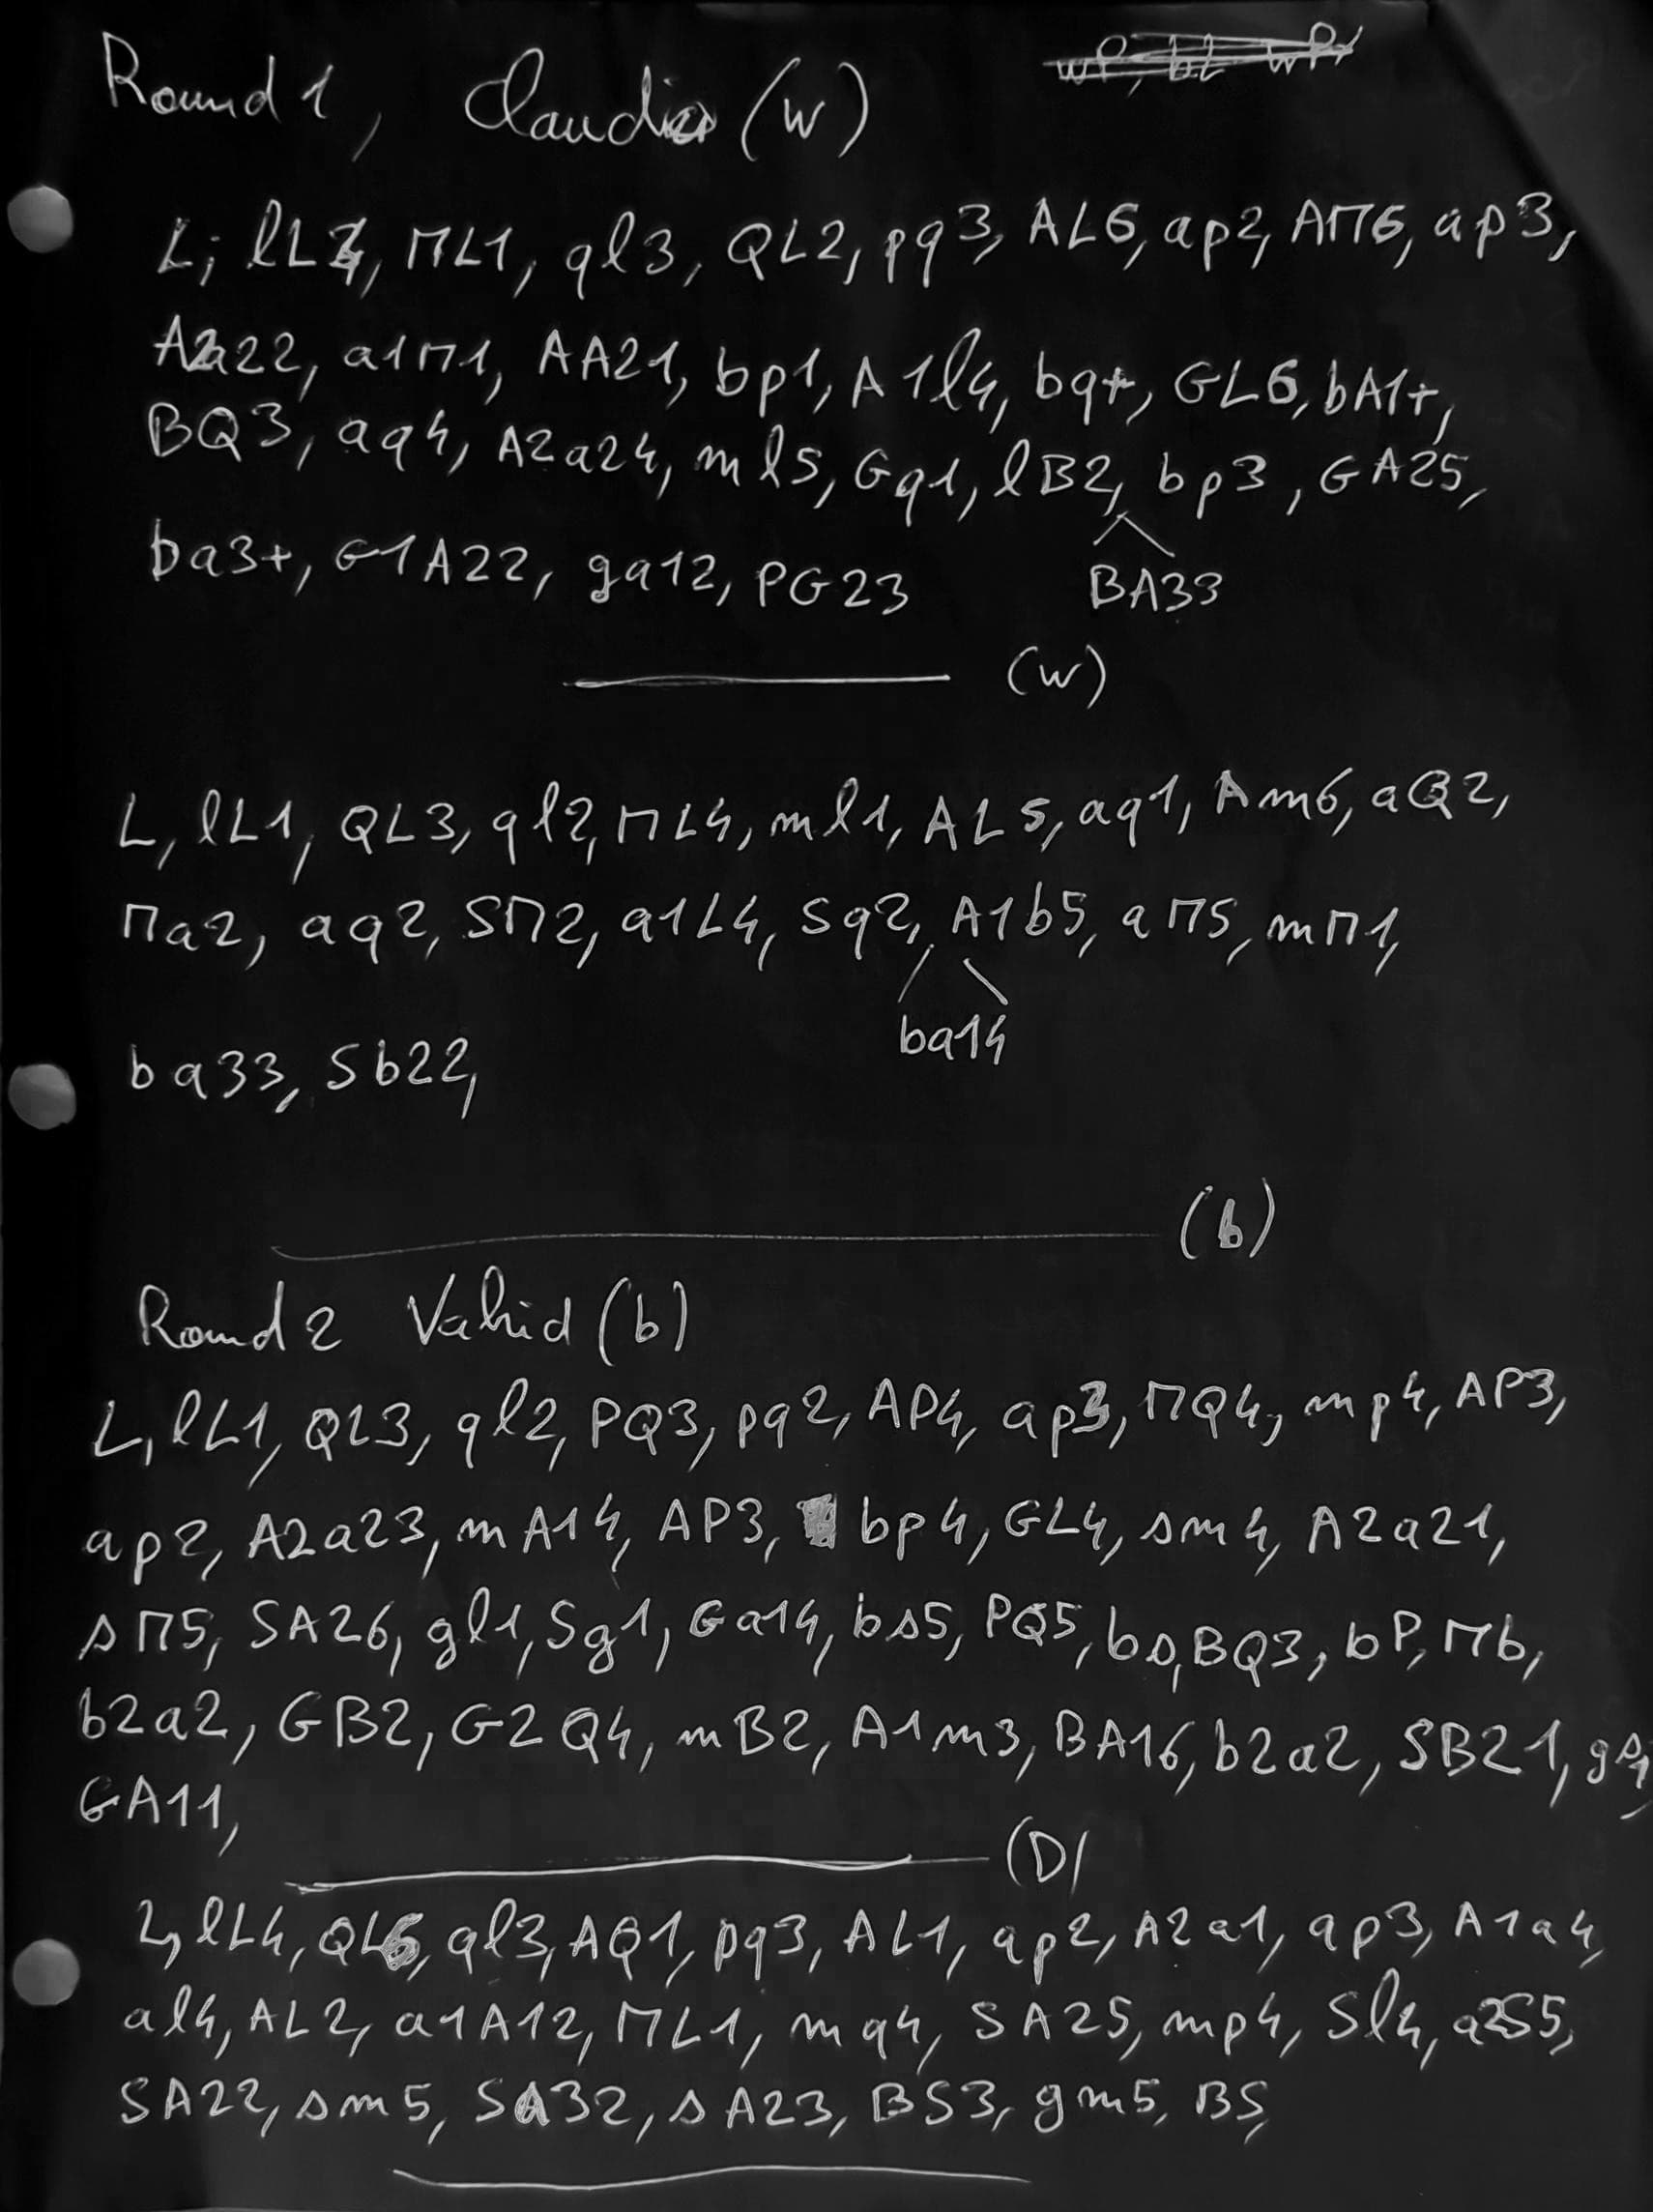 Round 1, Claudio (w)
L; lL4, ΠL1, ql3, QL2, pq3, AL6, ap2, AΠ6, ap3,
A2a22, a1Π1, AA21, bp1, A1l4, bq+, GL6, bA1+,
BQ3, aq4, A2a24, ml5, Gq1, lB2, bp3, GA25,
BA33
ba3+, G1A22, ga12, PG23
(w)
L, lL1, QL3, ql2, ΠL4, ml1, AL5, aq1, Am6, aQ2,
Πa2, aq2, SΠ2, a1L4, Sq2, A1b5, aΠ5, mΠ1,
ba14
ba33, Sb22,
(b)
Round 2 Vahid (b)
L, lL1, QL3, ql2, PQ3, pq2, AP4, ap3, ΠQ4, mp4, AP3,
ap2, A2a23, mA14, AP3, bp4, GL4, sm4, A2a21,
sΠ5, SA26, gl1, Sg1, Ga14, bs5, PQ5, bs, BQ3, bP, Πb,
b2a2, GB2, G2Q4, mB2, A1m3, BA16, b2a2, SB21,
GA11,
(D)
L, lL4, QL6, ql3, AQ1, pq3, AL1, ap2, A2a1, ap3, A1a4,
al4, AL2, a1A12, ΠL1, mq4, SA25, mp4, Sl4, a2S5,
SA22, sm5, SA32, sA23, BS3, gm5, BS,